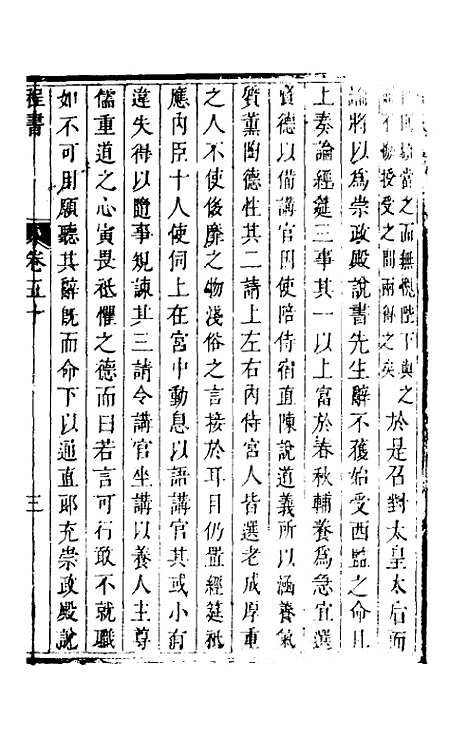 當之而無愧陛下與之
授受之間兩得之矣於是召對太皇太后而
論將以為崇政殿說書先生辭不獲始受西監之命且
上奏論經筵三事其一以上富於春秋輔養為急宜選
賢德以備講官因使陪侍宿直陳說道義所以涵養氣
質薰陶德性其二請上左右內侍宮人皆選老成厚重
之人不使侈靡之物淺俗之言接於耳目仍置經筵祗
應內臣十人使伺上在宮中動息以語講官其或小有
違失得以隨事規諫其三請令講官坐講以養人主尊
儒重道之心寅畏祗懼之德而曰若言可行敢不就職
如不可用願聽其辭既而命下以通直郎充崇政殿說
程書
卷五十
三